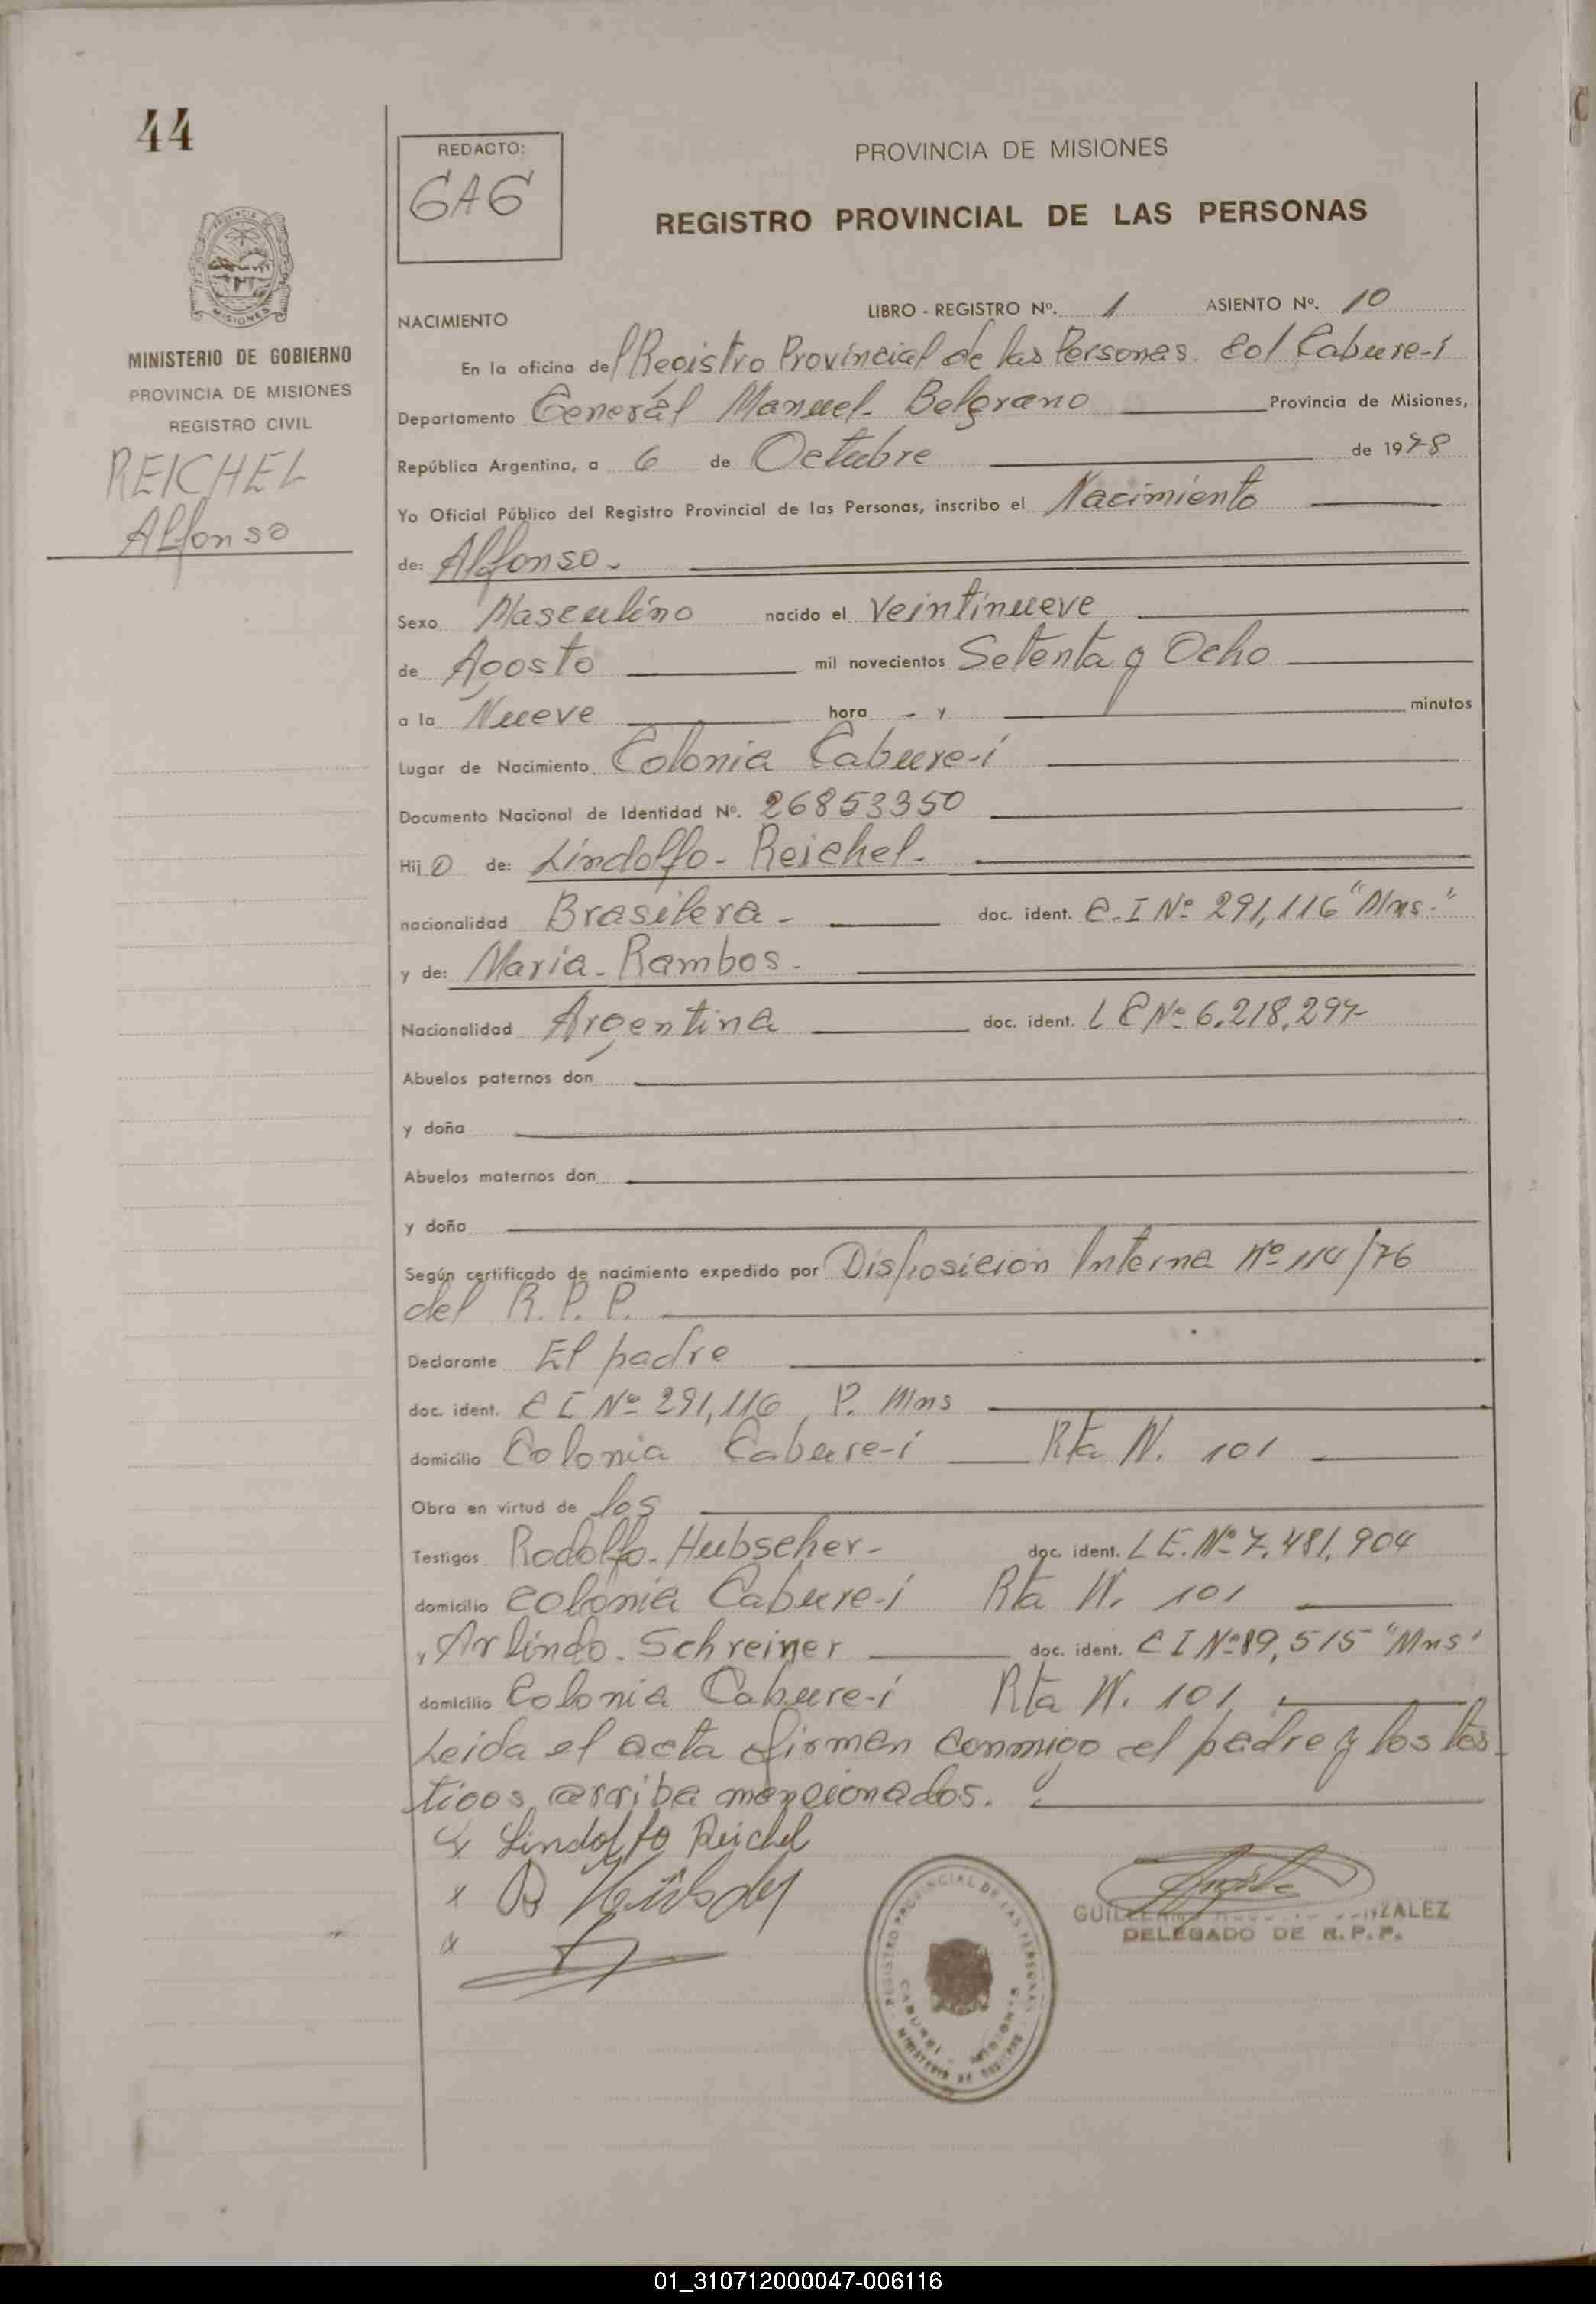 44
REDACTO:
GAG
PROVINCIA DE MISIONES
REGISTRO PROVINCIAL DE LAS PERSONAS
MISIONES
MINISTERIO DE GOBIERNO
PROVINCIA DE MISIONES
REGISTRO CIVIL
REICHEL
Alfonso
NACIMIENTO LIBRO - REGISTRO Nº. 1 ASIENTO Nº. 10
En la oficina del Registro Provincial de las Personas. Col Cabure-í
Departamento General Manuel Belgrano Provincia de Misiones,
República Argentina, a 6 de Octubre de 1978
Yo Oficial Público del Registro Provincial de las Personas, inscribo el Nacimiento
de: Alfonso.
Sexo Masculino nacido el Veintinueve
de Agosto mil novecientos Setenta y Ocho
a la Nueve hora - y minutos
Lugar de Nacimiento Colonia Cabure-í
Documento Nacional de Identidad Nº. 26853350
Hijo de: Lindolfo - Reichel.
nacionalidad Brasilera - doc. ident. C.I Nº 291,116 "Mns."
y de: María - Rambos.
Nacionalidad Argentina doc. ident. L C Nº 6.218.297
Abuelos paternos don
y doña
Abuelos maternos don
y doña
Según certificado de nacimiento expedido por Disposición Interna Nº 114/76
del R. P. P.
Declarante El padre
doc. ident. C I Nº 291,116 P. Mns
domicilio Colonia Cabure-í Rta N. 101
Obra en virtud de los
Testigos Rodolfo - Hubscher - doc. ident. L E. Nº 7.481.904
domicilio colonia Cabure-í Rta N. 101
y Arlindo. Schreiner doc. ident. C I Nº 89,515 "Mns"
domicilio Colonia Cabure-í Rta N. 101
Leida el acta firman conmigo el padre y los tes-
tigos arriba mencionados.
x Lindolfo Reichel
x
x
REGISTRO PROVINCIAL DE LAS PERSONAS
CABUREI - MISIONES
GONZALEZ
DELEGADO DE R.P.P.
01_310712000047-006116